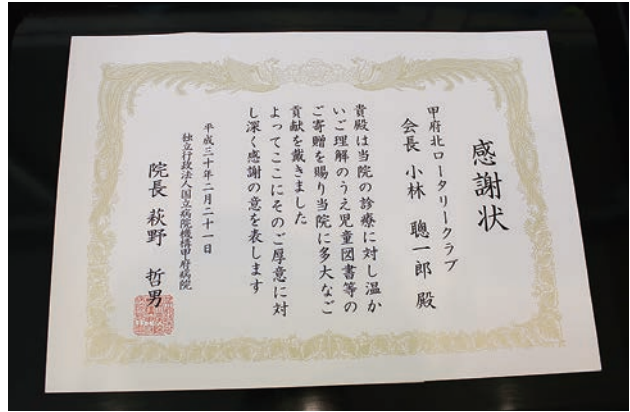 感謝状
甲府北ロータリークラブ
会長 小林 聰一郎 殿
貴殿は当院の診療に対し温か
いご理解のうえ児童図書等の
ご寄贈を賜り当院に多大なご
貢献を戴きました
よってここにそのご厚意に対
し深く感謝の意を表します
平成三十年二月二十一日
独立行政法人国立病院機構甲府病院
院長 萩野 哲男